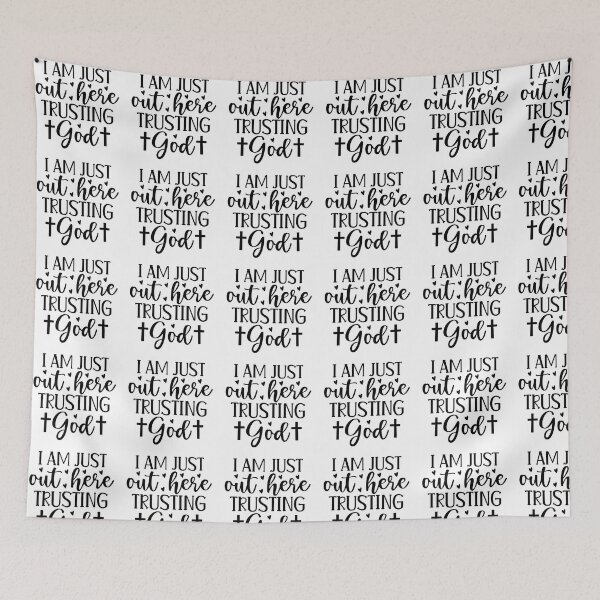 I AM JUST
out here
TRUSTING
God
I AM JUST
out here
TRUSTING
God
I AM JUST
out here
TRUSTING
God
I AM JUST
out here
TRUSTING
God
I AM JUST
out here
TRUSTING
God
I AM
out
I AM JUST
out here
TRUSTING
God
I AM JUST
out here
TRUSTING
God
I AM JUST
out here
TRUSTING
God
I AM JUST
out here
TRUSTING
God
I AM JUST
out here
TRUSTING
God
I AM
out
I AM JUST
out here
TRUSTING
God
I AM JUST
out here
TRUSTING
God
I AM JUST
out here
TRUSTING
God
I AM JUST
out here
TRUSTING
God
I AM JUST
out here
TRUSTING
God
I AM
out
I AM JUST
out here
TRUSTING
God
I AM JUST
out here
TRUSTING
God
I AM JUST
out here
TRUSTING
God
I AM JUST
out here
TRUSTING
God
I AM JUST
out here
TRUSTING
God
I AM
out
I AM JUST
out here
TRUSTING
I AM JUST
out here
TRUSTING
I AM JUST
out here
TRUSTING
I AM JUST
out here
TRUSTING
I AM JUST
out here
TRUSTING
I AM
out